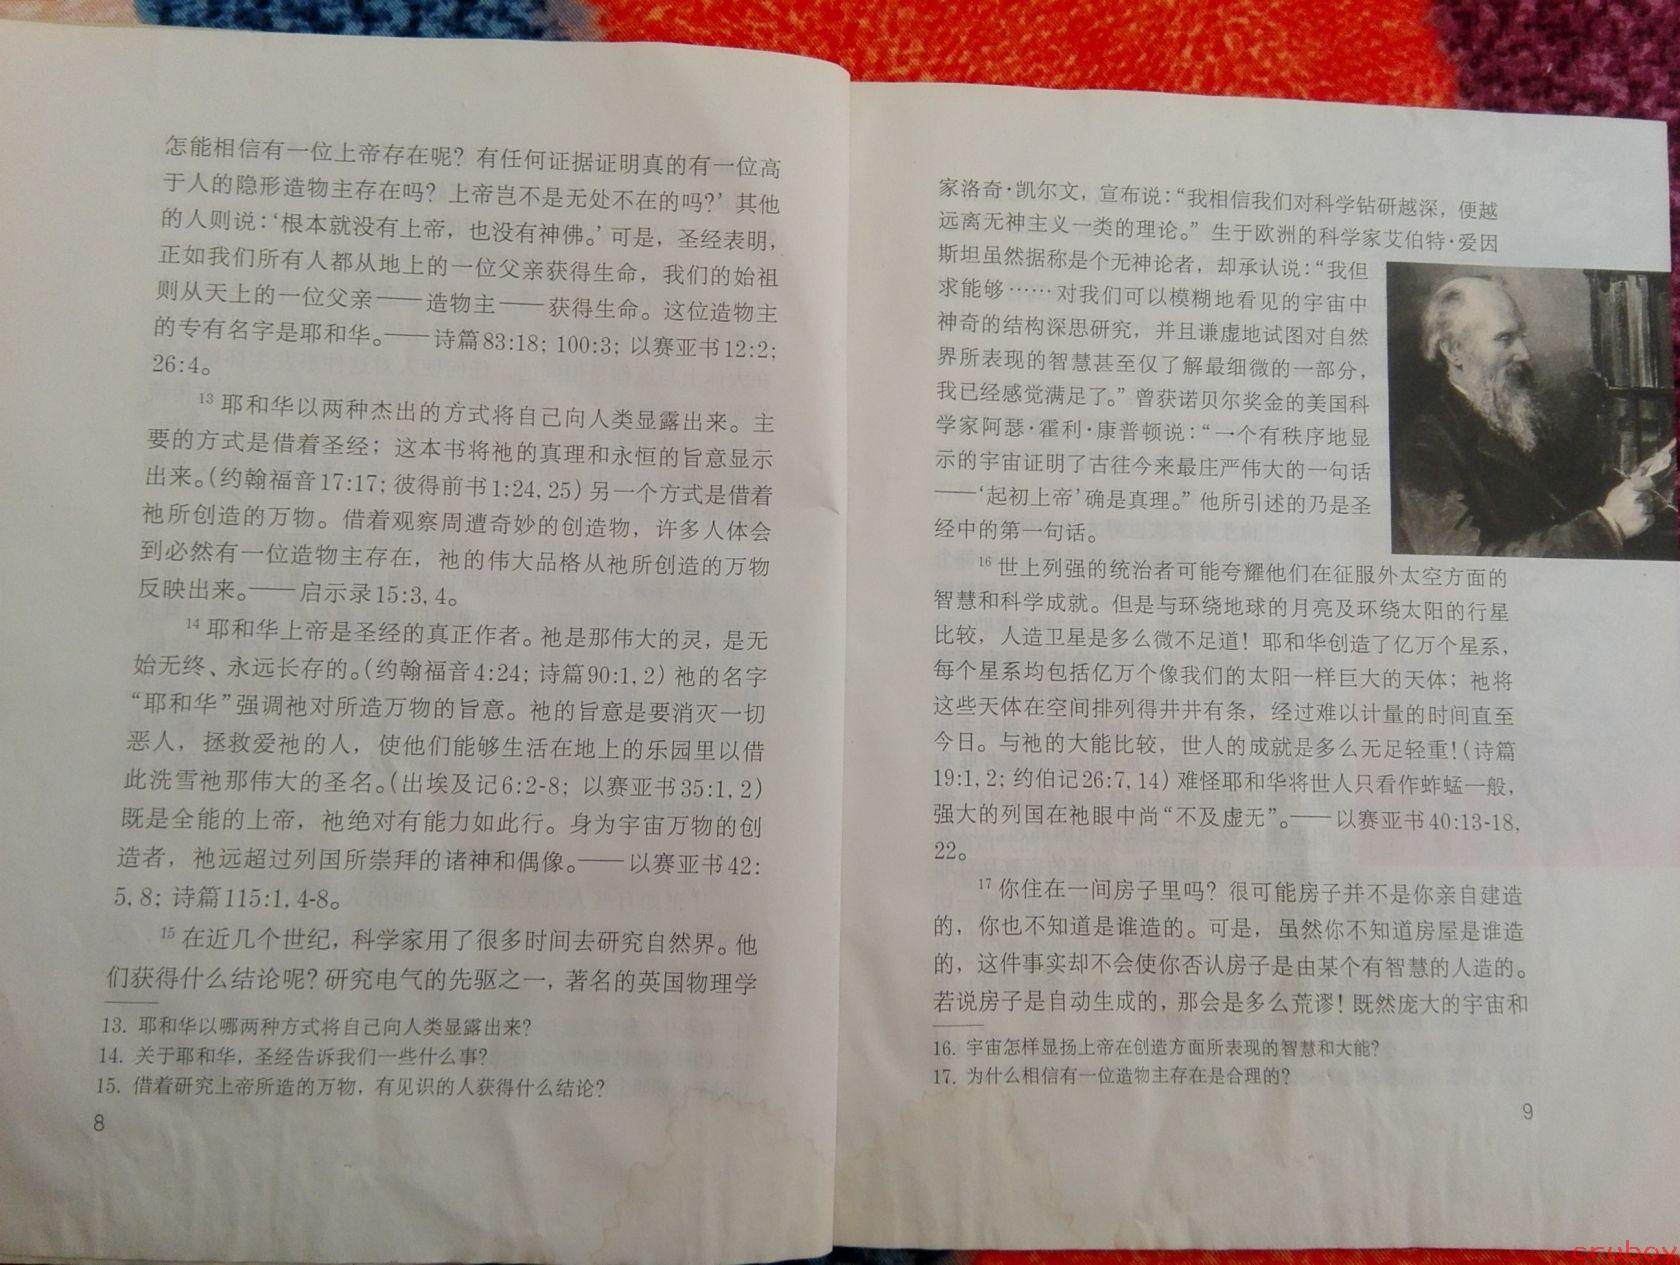 怎能相信有一位上帝存在呢？有任何证据证明真的有一位高
于人的隐形造物主存在吗？上帝岂不是无处不在的吗？’其他
的人则说：‘根本就没有上帝，也没有神佛。’可是，圣经表明，
正如我们所有人都从地上的一位父亲获得生命，我们的始祖
则从天上的一位父亲——造物主——获得生命。这位造物主
的专有名字是耶和华。——诗篇83:18；100:3；以赛亚书12:2；
26:4。
13 耶和华以两种杰出的方式将自己向人类显露出来。主
要的方式是借着圣经；这本书将祂的真理和永恒的旨意显示
出来。（约翰福音17:17；彼得前书1:24，25）另一个方式是借着
祂所创造的万物。借着观察周遭奇妙的创造物，许多人体会
到必然有一位造物主存在，祂的伟大品格从祂所创造的万物
反映出来。——启示录15:3，4。
14 耶和华上帝是圣经的真正作者。祂是那伟大的灵，是无
始无终、永远长存的。（约翰福音4:24；诗篇90:1，2）祂的名字
“耶和华”强调祂对所造万物的旨意。祂的旨意是要消灭一切
恶人，拯救爱祂的人，使他们能够生活在地上的乐园里以借
此洗雪祂那伟大的圣名。（出埃及记6:2-8；以赛亚书35:1，2）
既是全能的上帝，祂绝对有能力如此行。身为宇宙万物的创
造者，祂远超过列国所崇拜的诸神和偶像。——以赛亚书42：
5，8；诗篇115:1，4-8。
15 在近几个世纪，科学家用了很多时间去研究自然界。他
们获得什么结论呢？研究电气的先驱之一，著名的英国物理学
13. 耶和华以哪两种方式将自己向人类显露出来？
14. 关于耶和华，圣经告诉我们一些什么事？
15. 借着研究上帝所造的万物，有见识的人获得什么结论？
8
家洛奇·凯尔文，宣布说：“我相信我们对科学钻研越深，便越
远离无神主义一类的理论。”生于欧洲的科学家艾伯特·爱因
斯坦虽然据称是个无神论者，却承认说：“我但
求能够……对我们可以模糊地看见的宇宙中
神奇的结构深思研究，并且谦虚地试图对自然
界所表现的智慧甚至仅了解最细微的一部分，
我已经感觉满足了。”曾获诺贝尔奖金的美国科
学家阿瑟·霍利·康普顿说：“一个有秩序地显
示的宇宙证明了古往今来最庄严伟大的一句话
——‘起初上帝’确是真理。”他所引述的乃是圣
经中的第一句话。
16 世上列强的统治者可能夸耀他们在征服外太空方面的
智慧和科学成就。但是与环绕地球的月亮及环绕太阳的行星
比较，人造卫星是多么微不足道！耶和华创造了亿万个星系，
每个星系均包括亿万个像我们的太阳一样巨大的天体；祂将
这些天体在空间排列得井井有条，经过难以计量的时间直至
今日。与祂的大能比较，世人的成就是多么无足轻重！（诗篇
19:1，2；约伯记26:7，14）难怪耶和华将世人只看作蚱蜢一般，
强大的列国在祂眼中尚“不及虚无”。——以赛亚书40:13-18，
22。
17 你住在一间房子里吗？很可能房子并不是你亲自建造
的，你也不知道是谁造的。可是，虽然你不知道房屋是谁造
的，这件事实却不会使你否认房子是由某个有智慧的人造的。
若说房子是自动生成的，那会是多么荒谬！既然庞大的宇宙和
16. 宇宙怎样显扬上帝在创造方面所表现的智慧和大能？
17. 为什么相信有一位造物主存在是合理的？
9